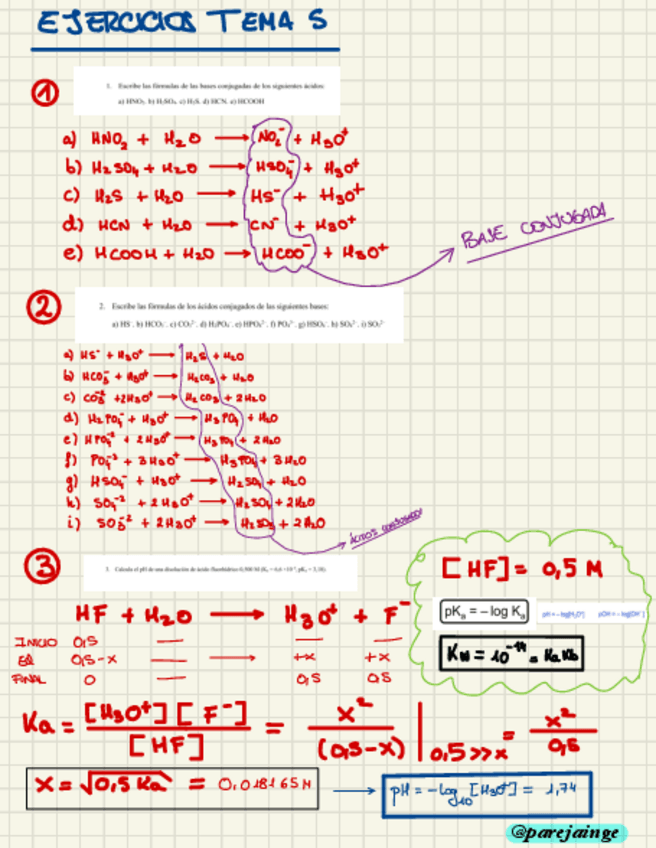 EJERCICIOS TEMA 5
1
1. Escribe las fórmulas de las bases conjugadas de los siguientes ácidos:
a) HNO₂. b) H₂SO₄. c) H₂S. d) HCN. e) HCOOH
a) HNO₂ + H₂O → NO₂⁻ + H₃O⁺
b) H₂SO₄ + H₂O → HSO₄⁻ + H₃O⁺
c) H₂S + H₂O → HS⁻ + H₃O⁺
d) HCN + H₂O → CN⁻ + H₃O⁺
e) HCOOH + H₂O → HCOO⁻ + H₃O⁺
BASE CONJUGADA
2
2. Escribe las fórmulas de los ácidos conjugados de las siguientes bases:
a) HS⁻. b) HCO₃⁻. c) CO₃²⁻. d) H₂PO₄⁻. e) HPO₄²⁻. f) PO₄³⁻. g) HSO₄⁻. h) SO₄²⁻. i) SO₃²⁻
a) HS⁻ + H₃O⁺ → H₂S + H₂O
b) HCO₃⁻ + H₃O⁺ → H₂CO₃ + H₂O
c) CO₃⁻² + 2H₃O⁺ → H₂CO₃ + 2H₂O
d) H₂PO₄⁻ + H₃O⁺ → H₃PO₄ + H₂O
e) HPO₄⁻² + 2H₃O⁺ → H₃PO₄ + 2H₂O
f) PO₄⁻³ + 3H₃O⁺ → H₃PO₄ + 3H₂O
g) HSO₄⁻ + H₃O⁺ → H₂SO₄ + H₂O
h) SO₄⁻² + 2H₃O⁺ → H₂SO₄ + 2H₂O
i) SO₃⁻² + 2H₃O⁺ → H₂SO₃ + 2H₂O
ÁCIDOS CONJUGADOS
3
3. Calcula el pH de una disolución de ácido fluorhídrico 0,500 M (Kₐ = 6,6 ×10⁻⁴, pKₐ = 3,18).
[HF] = 0,5 M
pKₐ = − log Kₐ
pH = −log[H₃O⁺] pOH = −log[OH⁻]
Kw = 10⁻¹⁴ = Ka Kb
HF + H₂O → H₃O⁺ + F⁻
INICIO 0,5 — — —
EQ 0,5-x — → +x +x
FINAL 0 — 0,5 0,5
Ka = [H₃O⁺][F⁻] / [HF] = x² / (0,5-x) | 0,5>>x = x² / 0,5
x = √0,5 Ka = 0,018165M → pH = -log₁₀ [H₃O⁺] = 1,74
@parejainge